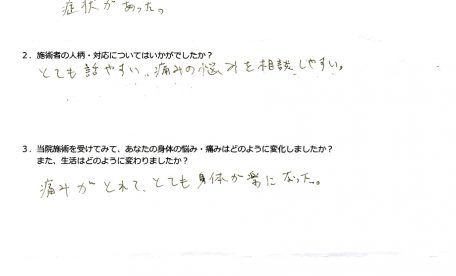 症状があった。
2．施術者の人柄・対応についてはいかがでしたか？
とても話やすい、痛みの悩みを相談しやすい。
3．当院施術を受けてみて、あなたの身体の悩み・痛みはどのように変化しましたか？
また、生活はどのように変わりましたか？
痛みがとれて、とても身体が楽になった。